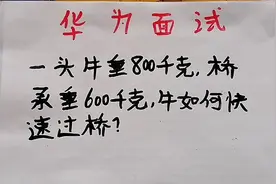 华为面试
一头牛重800千克,桥
承重600千克,牛如何快
速过桥?